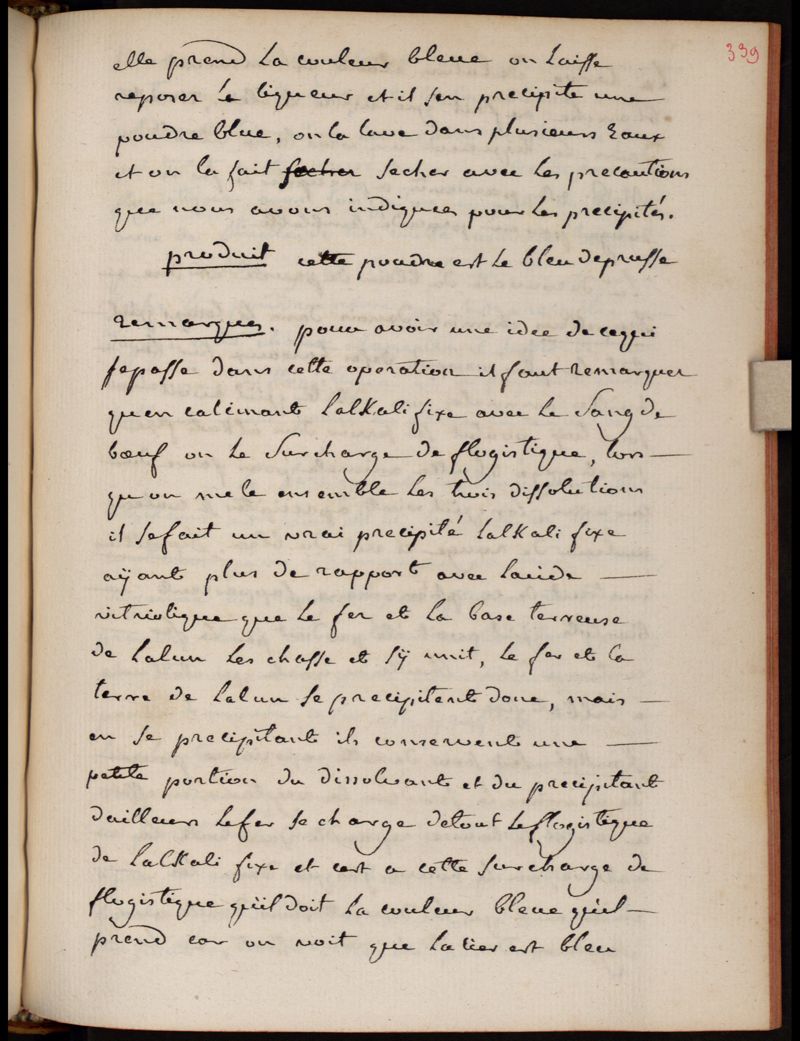 339
elle prend la couleur bleue on laisse
reposer le liqueur et il sen precipite une
poudre blue, on la lave dans plusieurs Eaux
et on la fait secher secher avec les precautions
que nous avons indiquees pour les precipités.
produit cette poudre est le bleu deprusse
remarques. pour avoir une idee de cequi
sepasse dans cette operation il faut remarquer
quen calcinant lalkali fixe avec le Sang de
bœuf on le Surcharge de flogistique, lors
qu on mele ensemble les trois dissolutions
il sefait un vrai precipité lalkali fixe
aÿant plus de rapport avec lacide
vitriolique que le fer et la base terreuse
de lalun les chasse et sÿ unit, le fer et la
terre de lalun se precipitent donc, mais
en se precipitant ils conservent une
petite portion du dissolvant et du precipitant
dailleurs lefer se charge detout leflogistique
de lalkali fixe et cest a cette surcharge de
flogistique quil doit la couleur bleue quil
prend car on voit que lacier est bleu